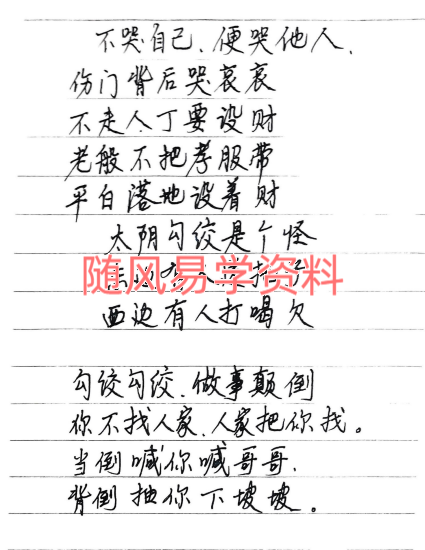 不哭自己、便哭他人、
伤门背后哭哀哀
不走人丁要设财
老般不把孝服带
平白落地设着财
太阴勾绞是个怪
随风易学资料
西边有人打喝欠
勾绞勾绞、做事颠倒
你不找人家、人家把你找。
当倒喊你喊哥哥、
背倒抽你下坡坡。